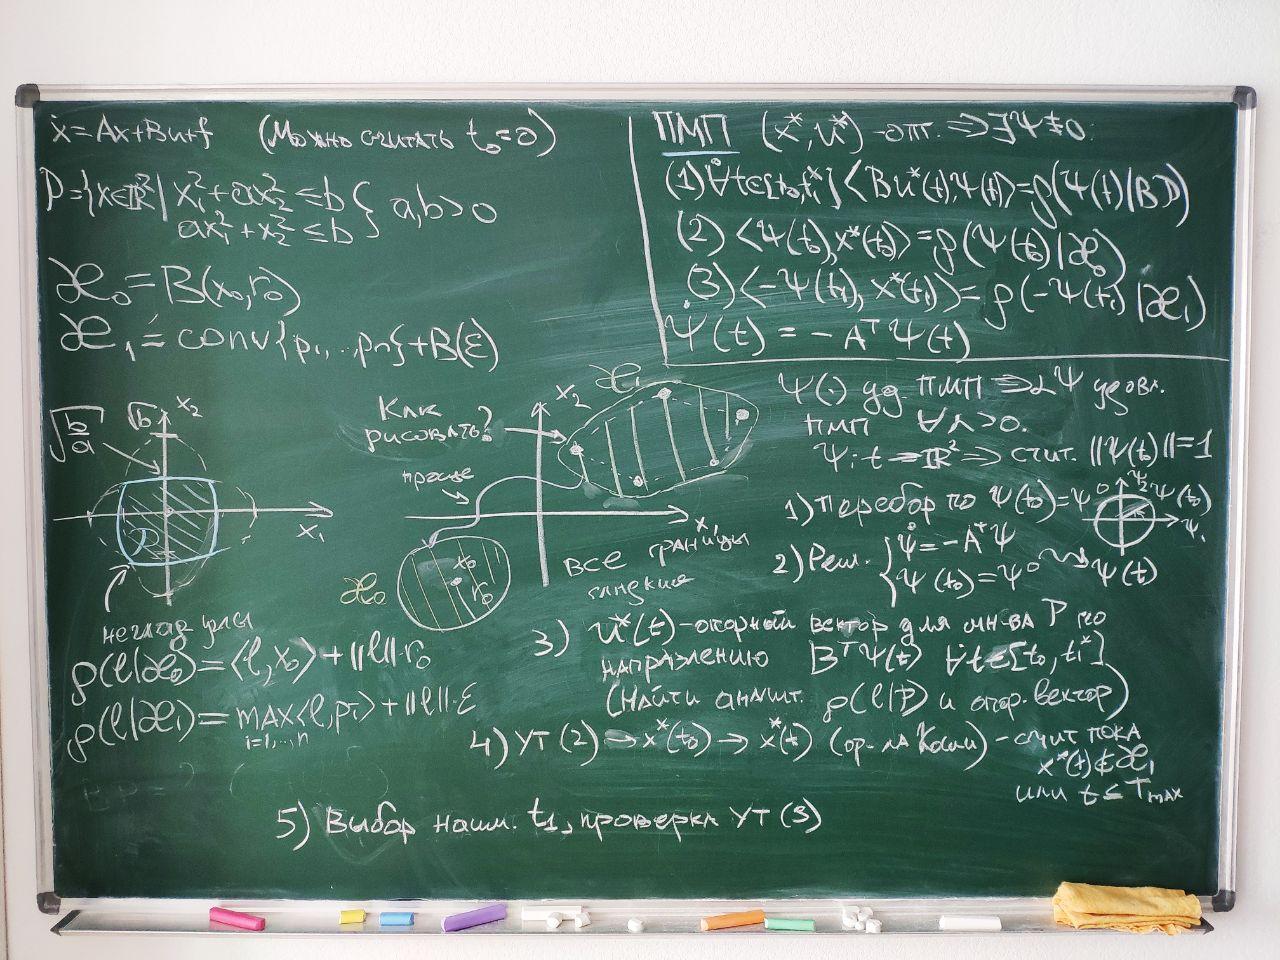 ẋ=Ax+Bu+f (Можно считать t₀=0)
P={x∈ℝ²| x₁²+ax₂²≤b
ax₁²+x₂²≤b } a,b>0
𝒳₀=B(x₀,r₀)
𝒳₁=conv{p₁,...,pₙ}+B(ε)
√(b/a)
√b
x₂
x₁
неглад углы
ρ(l|𝒳₀)=⟨l,x₀⟩+||l||·r₀
ρ(l|𝒳₁)=max⟨l,pᵢ⟩+||l||·ε
i=1,...,n
Как
рисовать?
проще
x₂
𝒳₁
x₁
𝒳₀
x₀
r₀
все границы
гладкие
ПМП (x*,u*)-оп. ⇒∃Ψ≢0:
(1)∀t∈[t₀,t₁*] ⟨Bu*(t),Ψ(t)⟩=ρ(Ψ(t)|BP)
(2) ⟨Ψ(t₀),x*(t₀)⟩=ρ(Ψ(t₀)|𝒳₀)
(3)⟨-Ψ(t₁), x*(t₁)⟩=ρ(-Ψ(t₁)|𝒳₁)
Ψ̇(t)=-AᵀΨ(t)
Ψ(·) уд ПМП ⇒ αΨ удовл.
ПМП ∀α>0.
Ψ:t→ℝ² ⇒ счит. ||Ψ(t)||=1
1) Перебор по Ψ(t₀)=Ψ⁰
Ψ₂
Ψ(t₀)
Ψ₁
2) Реш. { Ψ̇=-AᵀΨ
Ψ(t₀)=Ψ⁰ ⇝ Ψ(t)
3) u*(t)-опорный вектор для мн-ва P по
направлению BᵀΨ(t) ∀t∈[t₀,t₁*]
(Найти аналит. ρ(l|P) и опор. вектор)
4) УТ (2) → x*(t₀) → x*(t) (ф-ла Коши) - счит пока
x*(t)∉𝒳₁
или t≤Tmax
5) Выбор наим. t₁, проверка УТ (3)